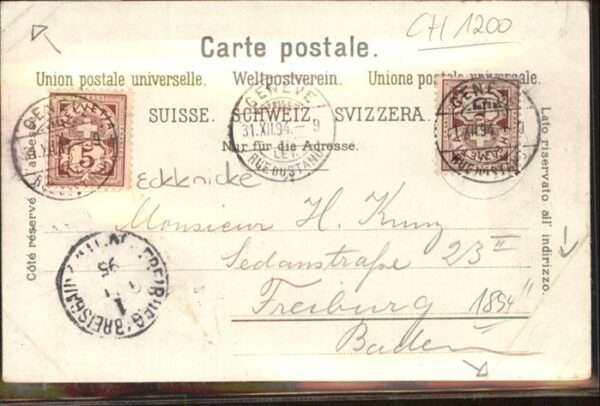 CH 1200
Carte postale.
Union postale universelle. Weltpostverein. Unione postale universale.
SUISSE. SCHWEIZ. SVIZZERA.
Nur für die Adresse.
Côté réservé à l'adresse.
Lato riservato all' indirizzo.
5
GENÈVE
31.XII.94.–9
LET.
GENÈVE
XII.94.–9
Eckknicke
Monsieur H. Kunz
Sedanstraße 23 II
Freiburg 1894
Baden
FREIBURG (BREISGAU)
1
95